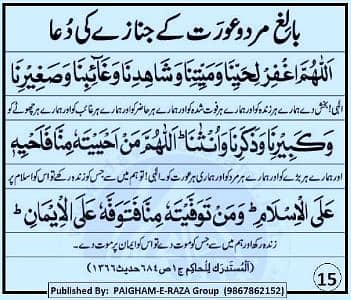 بالغ مرد و عورَت کے جنازے کی دُعا
اَللّٰهُمَّ اغْفِرْ لِحَيِّنَا وَمَيِّتِنَا وَشَاهِدِنَا وَغَآئِبِنَا وَصَغِيْرِنَا
الٰہی! بخش دے ہمارے ہر زندہ کو اور ہمارے ہر فوت شدہ کو اور ہمارے ہر حاضر کو اور ہمارے ہر غائب کو اور ہمارے ہر چھوٹے کو
وَكَبِيْرِنَا وَذَكَرِنَا وَاُنْثٰنَا ؕ اَللّٰهُمَّ مَنْ اَحْيَيْتَهٗ مِنَّا فَاَحْيِهٖ
اور ہمارے ہر بڑے کو اور ہمارے ہر مرد کو اور ہماری ہر عورت کو۔ الٰہی! تو ہم میں سے جس کو زندہ رکھے تو اس کو اسلام پر
عَلَى الْاِسْلَامِ ؕ وَمَنْ تَوَفَّيْتَهٗ مِنَّا فَتَوَفَّهٗ عَلَى الْاِيْمَانِ ؕ
زندہ رکھ اور ہم میں سے جس کو موت دے تو اس کو ایمان پر موت دے۔
(اَلْمُسْتَدْرَك لِلْحَاكِم ج ۱ ص ۶۸۴ حدیث ۱۳۶۶)
15
Published By: PAIGHAM-E-RAZA Group (9867862152)